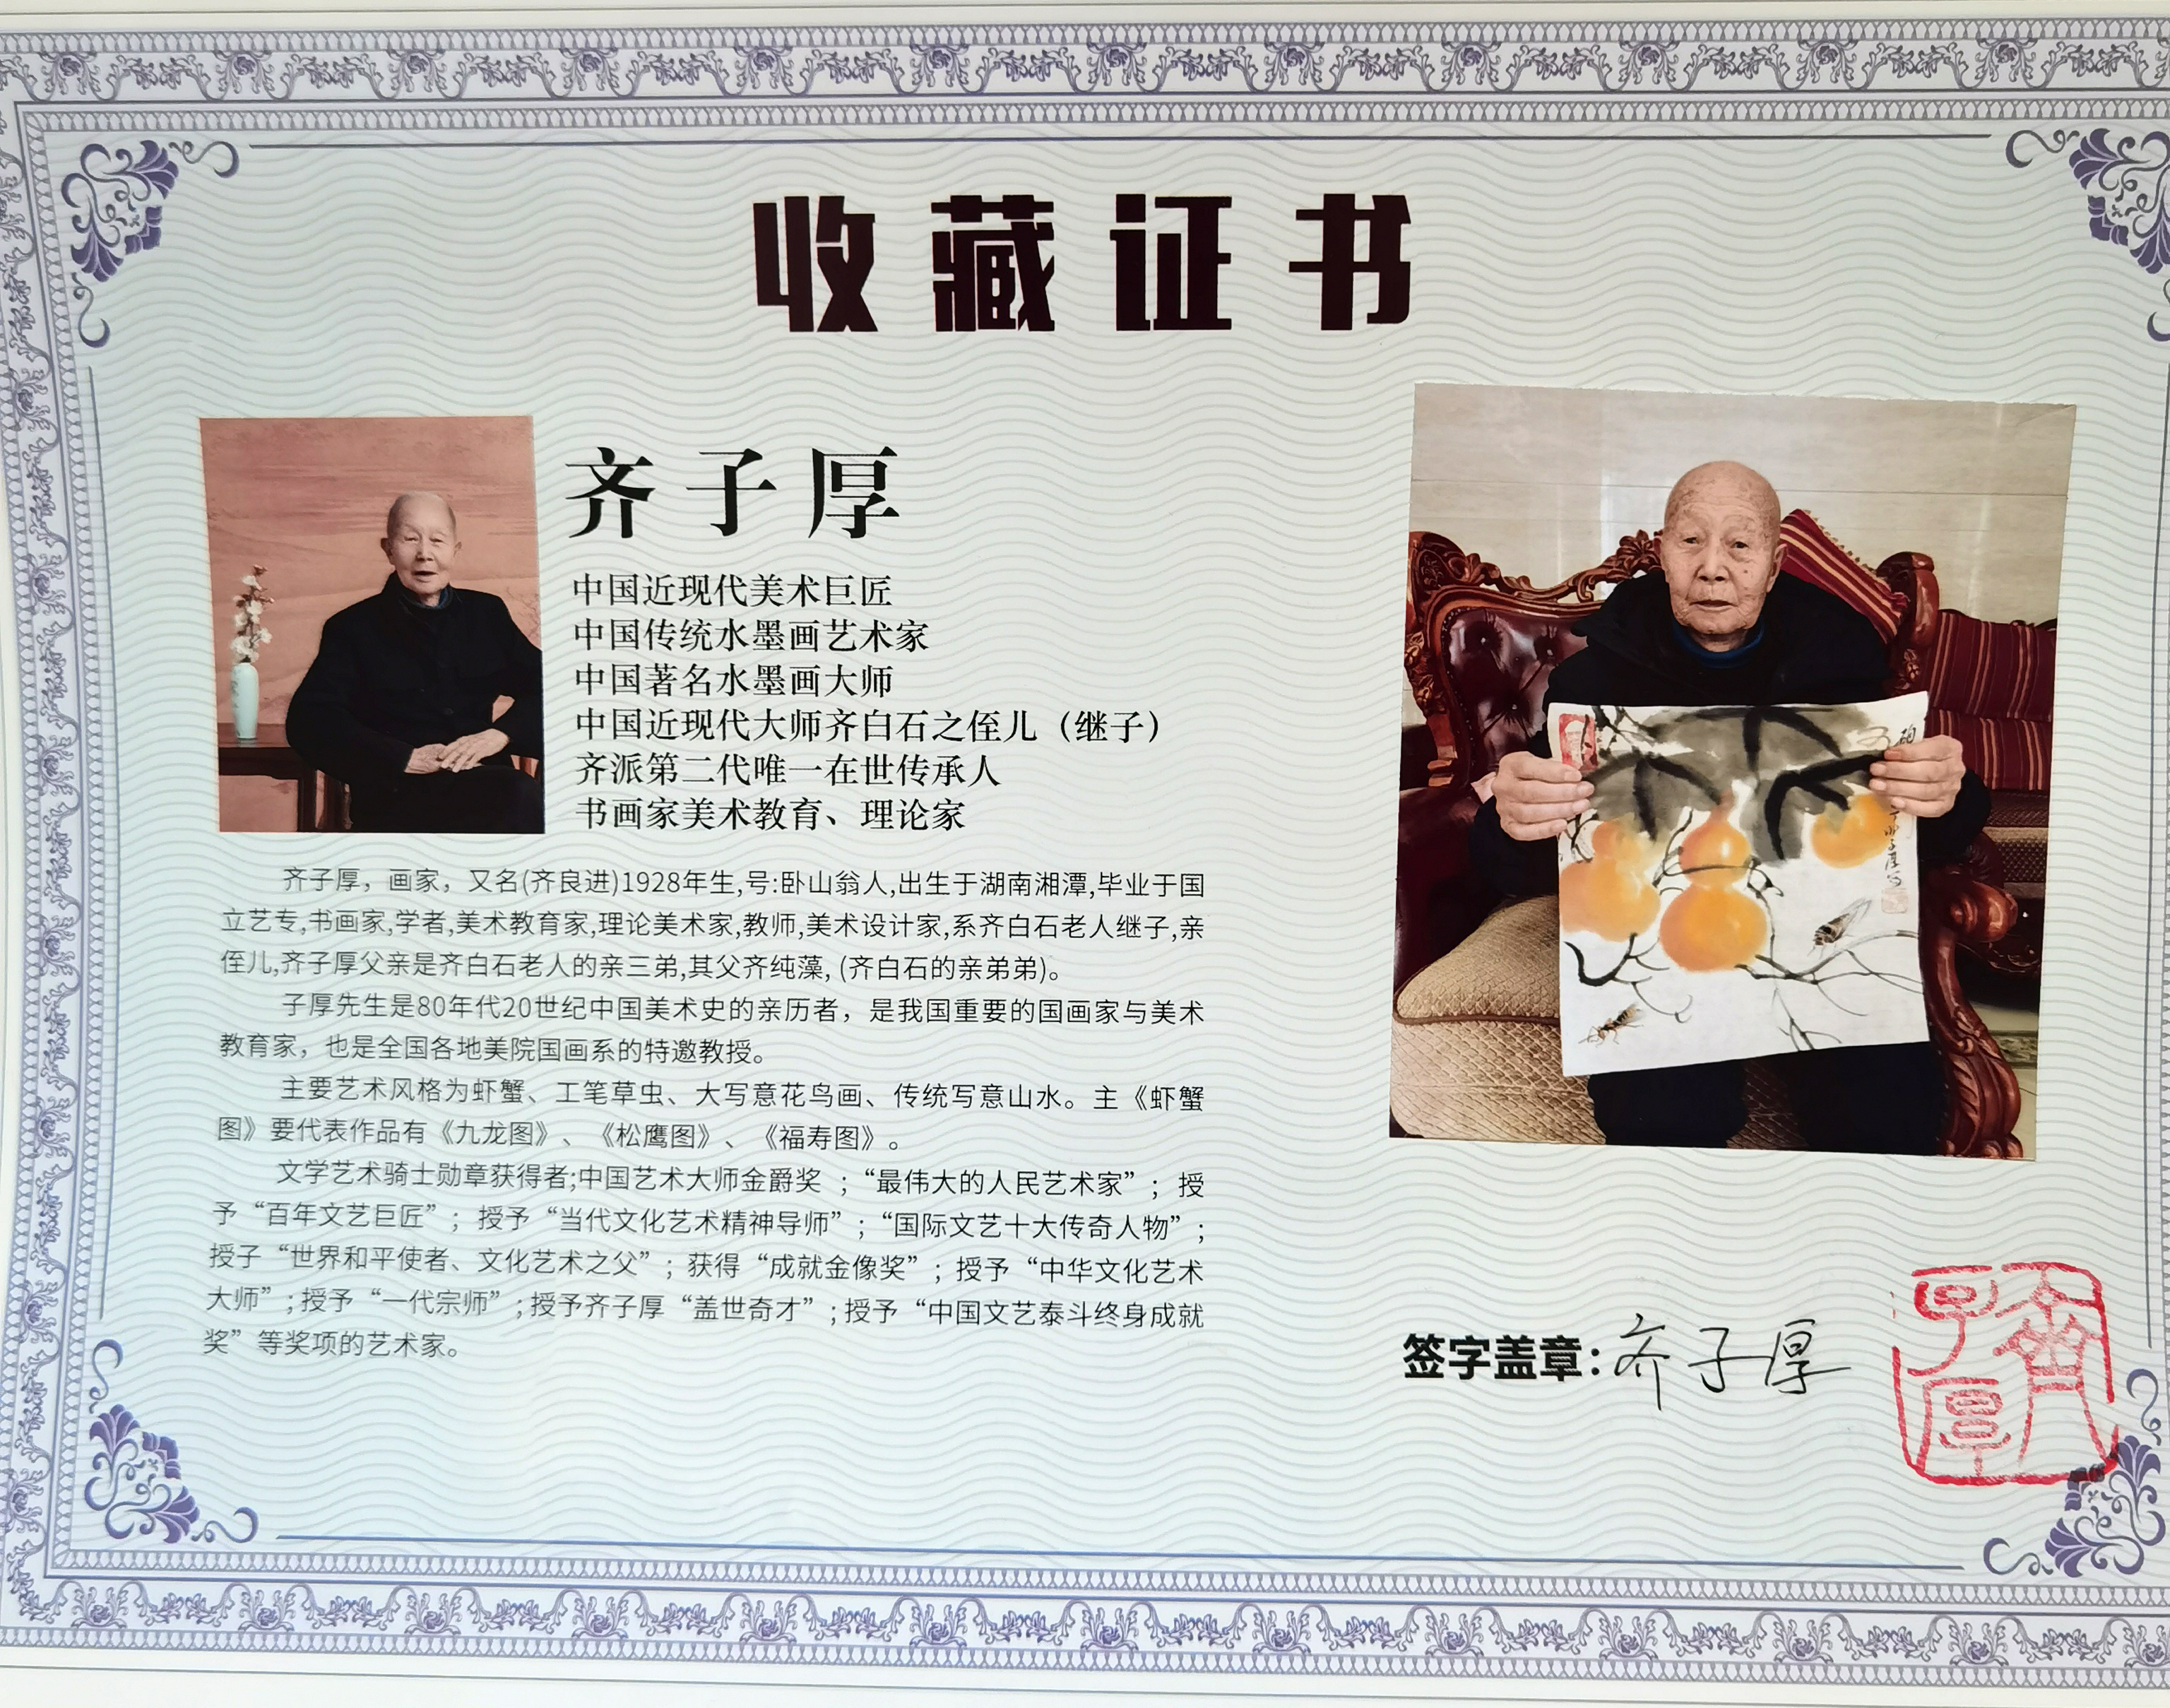 收藏证书
齐子厚
中国近现代美术巨匠
中国传统水墨画艺术家
中国著名水墨画大师
中国近现代大师齐白石之侄儿（继子）
齐派第二代唯一在世传承人
书画家美术教育、理论家
齐子厚，画家，又名(齐良进)1928年生,号:卧山翁人,出生于湖南湘潭,毕业于国
立艺专,书画家,学者,美术教育家,理论美术家,教师,美术设计家,系齐白石老人继子,亲
侄儿,齐子厚父亲是齐白石老人的亲三弟,其父齐纯藻, (齐白石的亲弟弟)。
子厚先生是80年代20世纪中国美术史的亲历者，是我国重要的国画家与美术
教育家，也是全国各地美院国画系的特邀教授。
主要艺术风格为虾蟹、工笔草虫、大写意花鸟画、传统写意山水。主《虾蟹
图》要代表作品有《九龙图》、《松鹰图》、《福寿图》。
文学艺术骑士勋章获得者;中国艺术大师金爵奖 ；“最伟大的人民艺术家”；授
予“百年文艺巨匠”；授予“当代文化艺术精神导师”；“国际文艺十大传奇人物”；
授子“世界和平使者、文化艺术之父”；获得“成就金像奖”；授予“中华文化艺术
大师”；授予“一代宗师”；授予齐子厚“盖世奇才”；授予“中国文艺泰斗终身成就
奖”等奖项的艺术家。
签字盖章：齐子厚
齊子厚